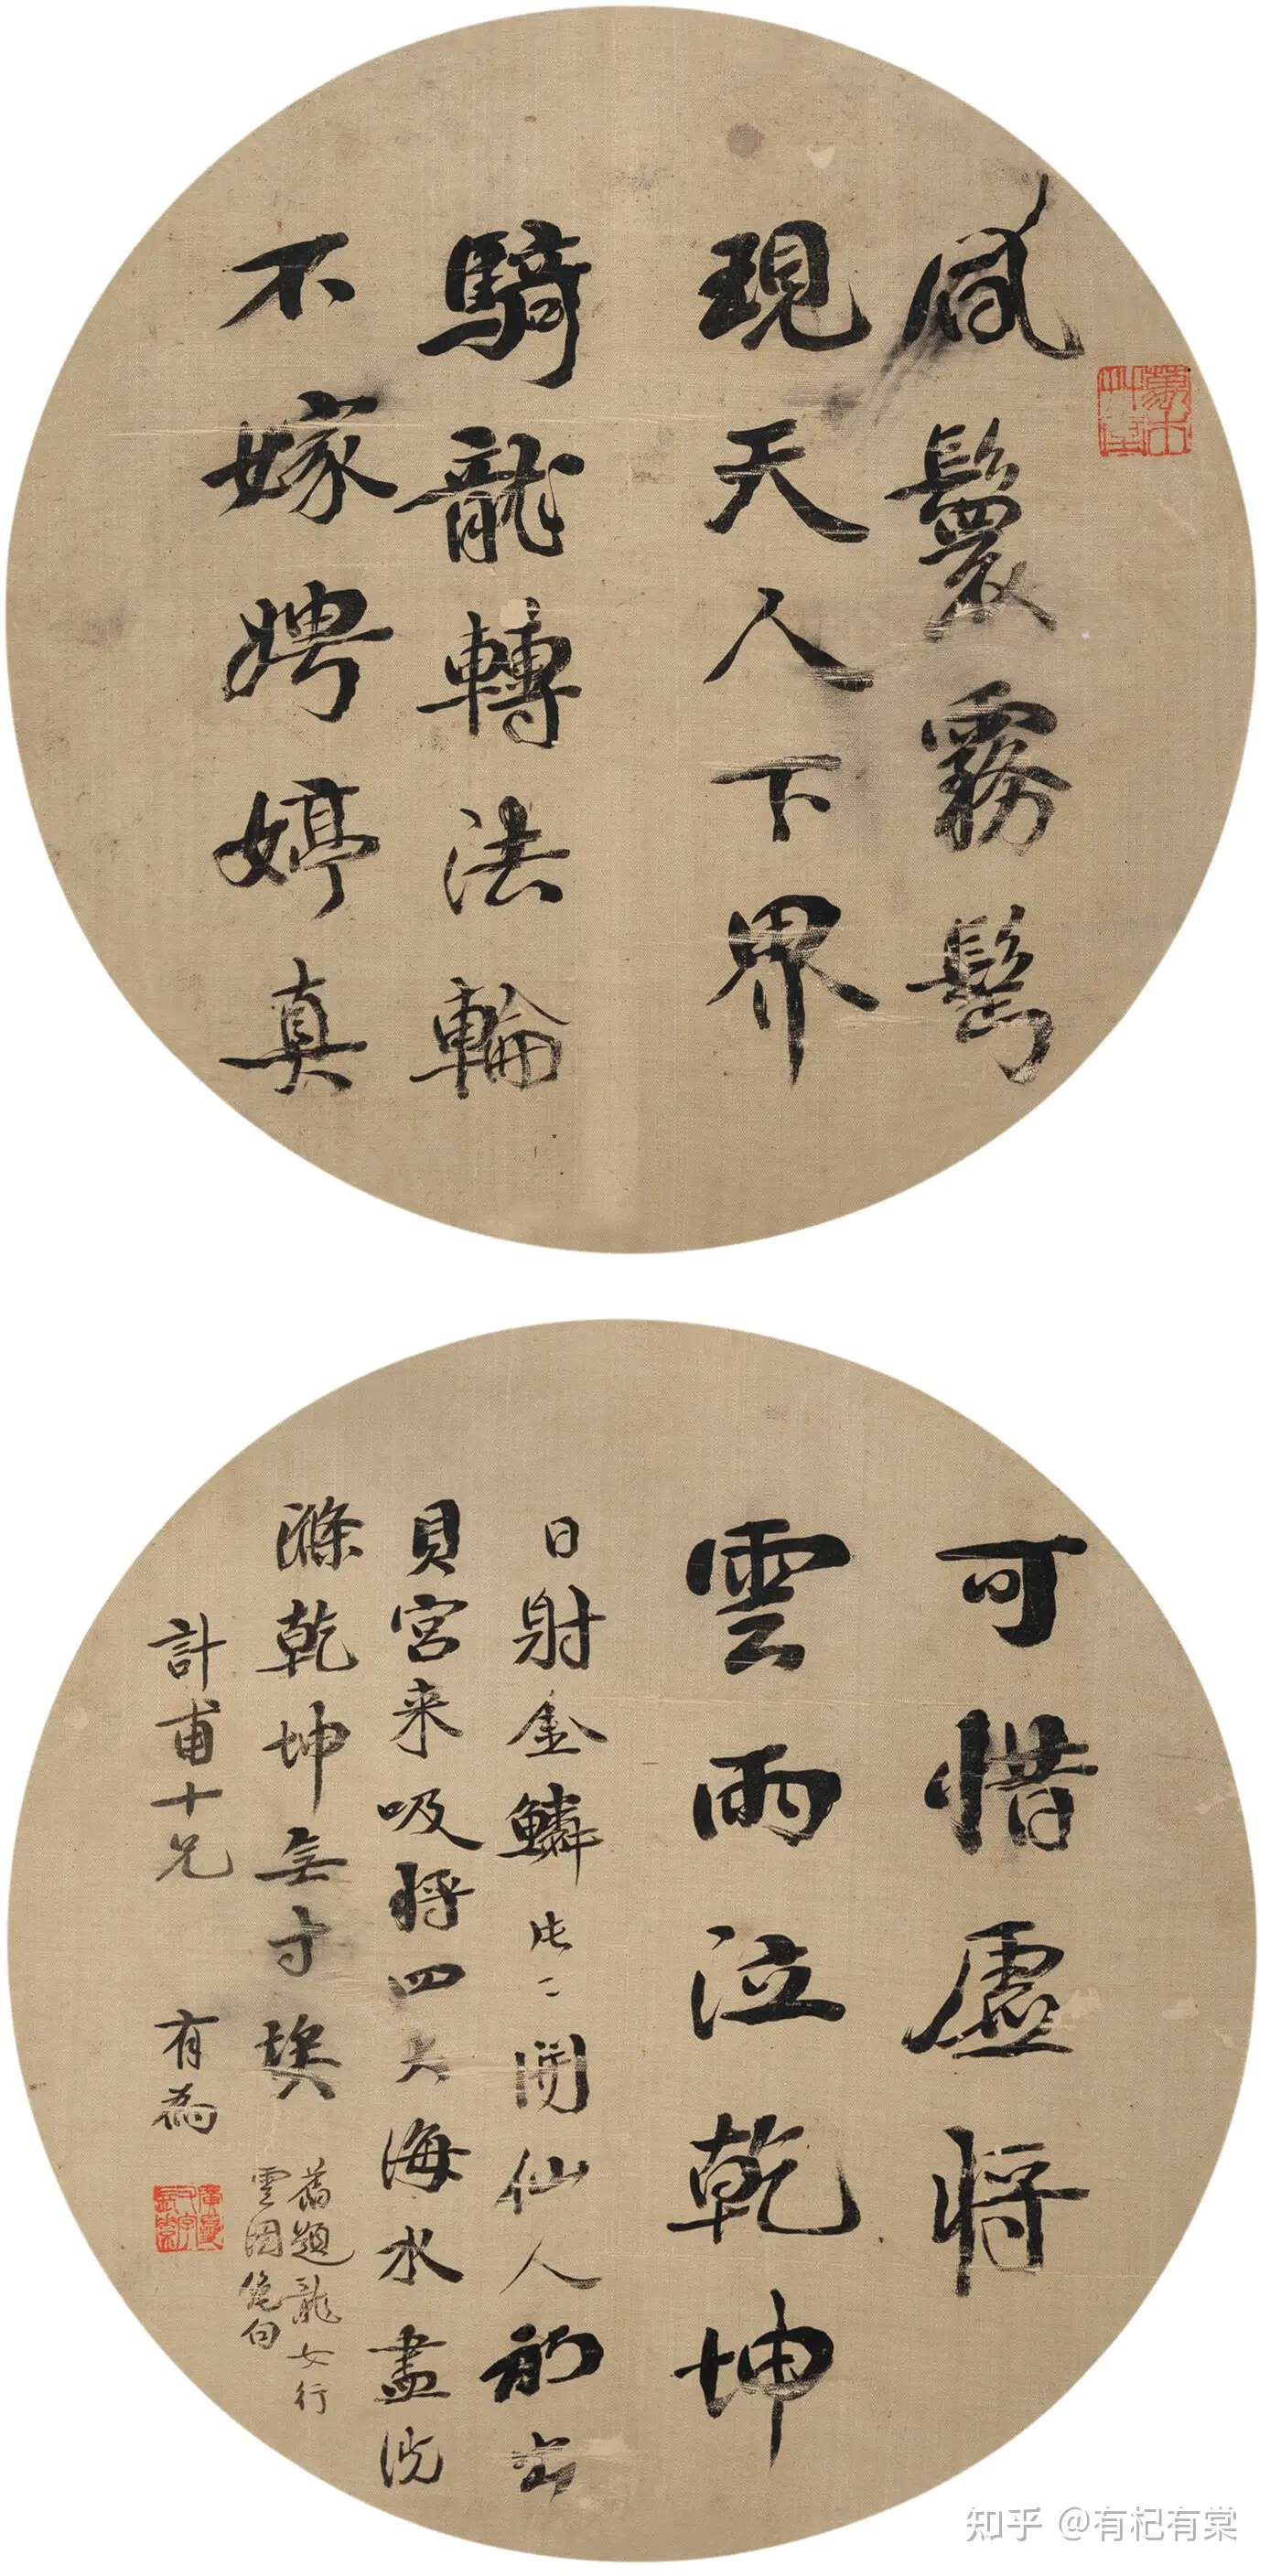 風鬟霧鬢
現天人下界
騎龍轉法輪
不嫁娉婷真
可惜虛將
雲雨泣乾坤
日射金鱗沈〻開仙人初出
貝宮来吸將四大海水盡洗
滌乾坤無寸埃
舊題龍女行
雲圖絶句
計甫十兄
有為
知乎 @有杞有棠